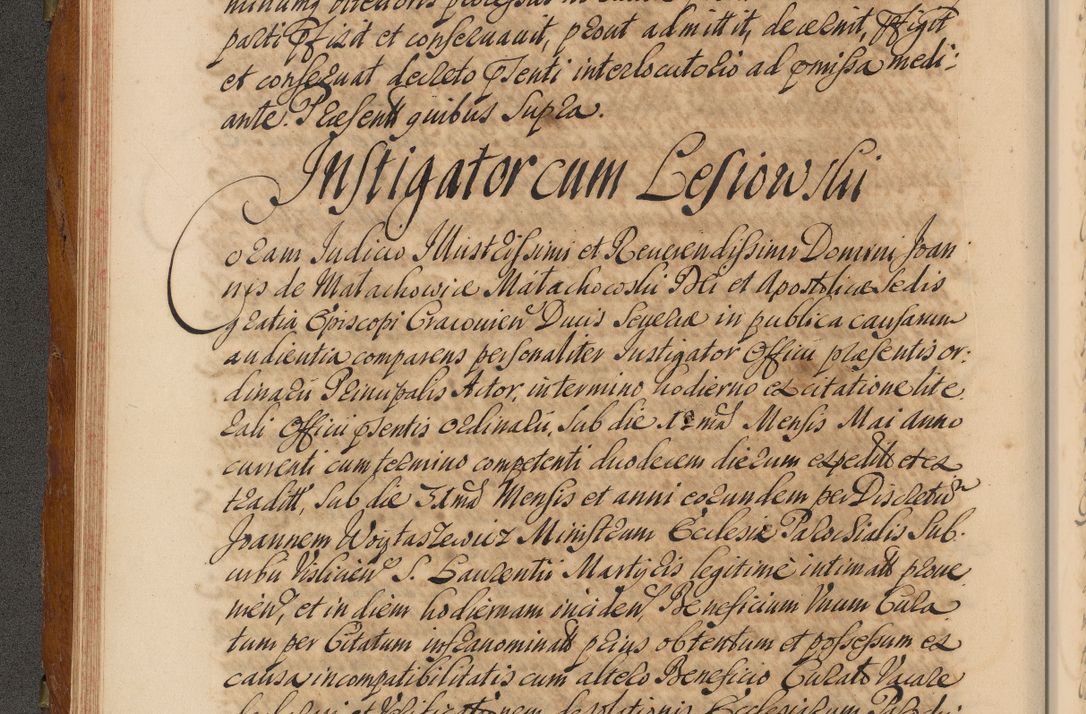 parti affixit et conservavit, prout admittit, decernit, affigit
et conservat decreto pñti interlocutorio ad pmissa medi:
ante. Præsentt quibus Supra.
Instigator cum Lesiowski
Coram Judicio Illustrissimi et Reverendissimi Domini Joan
nis de Małachowice Małachowski Dei et Apostolicæ Sedis
gratia Episcopi Cracovien Ducis Severiæ in publica causarum
audientia comparens personaliter Instigator Officii præsentis or:
dinarii Principalis Actor, in termino hodierno ex citatione lite
rali Officii pñtis ordinarii, sub die 1ma Mensis Mai anno
currenti cum termino competenti duodecem dierum expedit et ex
tradit, sub die 31ma Mensis et anni eorundem per Discretum
Joannem Woytaszewicz Ministrum Ecclesiæ Parochialis Sub.
urbii Vislicien S. Laurentii Martyris legitime intimat prove
nien, et in diem hodiernam inciden, Beneficium Unum Cura
tum per Citatum infranominat prius obtentum et possessum ex
causa incompatibilitatis cum altero Beneficio Curato Vacare